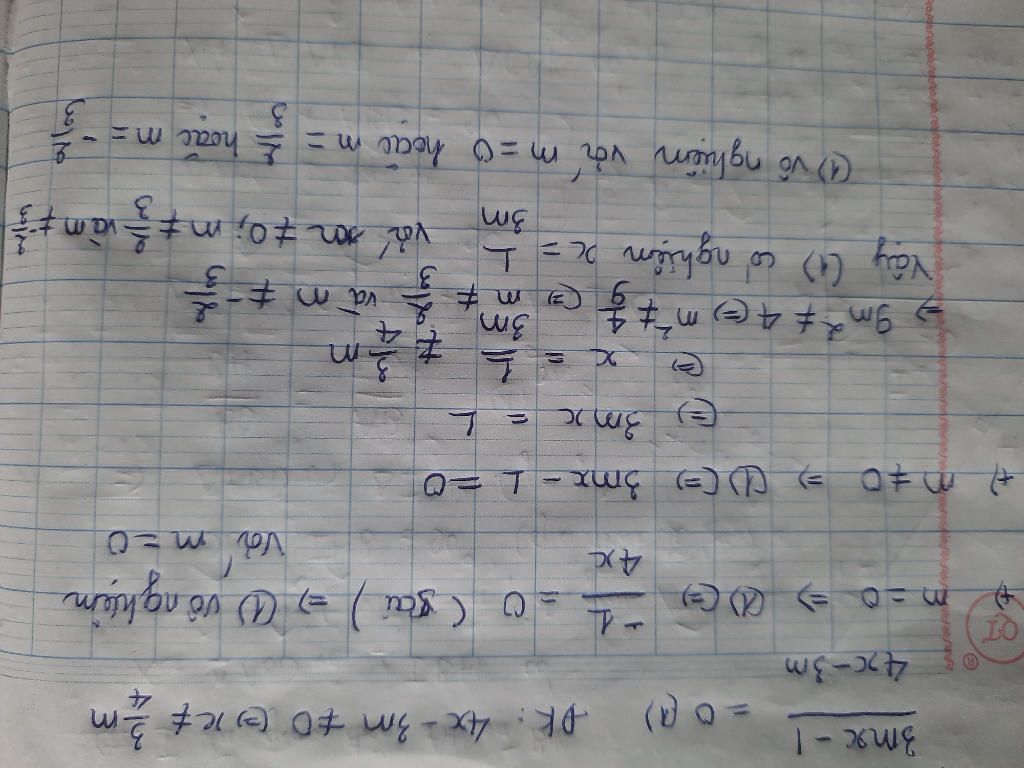 3mx-1 / 4x-3m = 0 (1) ĐK: 4x-3m ≠ 0 (=) x ≠ 3/4 m
+) m = 0 => (1) (=) -1/4x = 0 (Sai) => (1) vô nghiệm
với m = 0
+) m ≠ 0 => (1) (=) 3mx - 1 = 0
(=) 3mx = 1
(=) x = 1/3m ≠ 3/4 m
=> 9m² ≠ 4 (=) m² ≠ 4/9 (=) m ≠ 2/3 và m ≠ -2/3
Vậy (1) có nghiệm x = 1/3m với m ≠ 0; m ≠ 2/3 và m ≠ -2/3
(1) vô nghiệm với m = 0 hoặc m = 2/3 hoặc m = -2/3